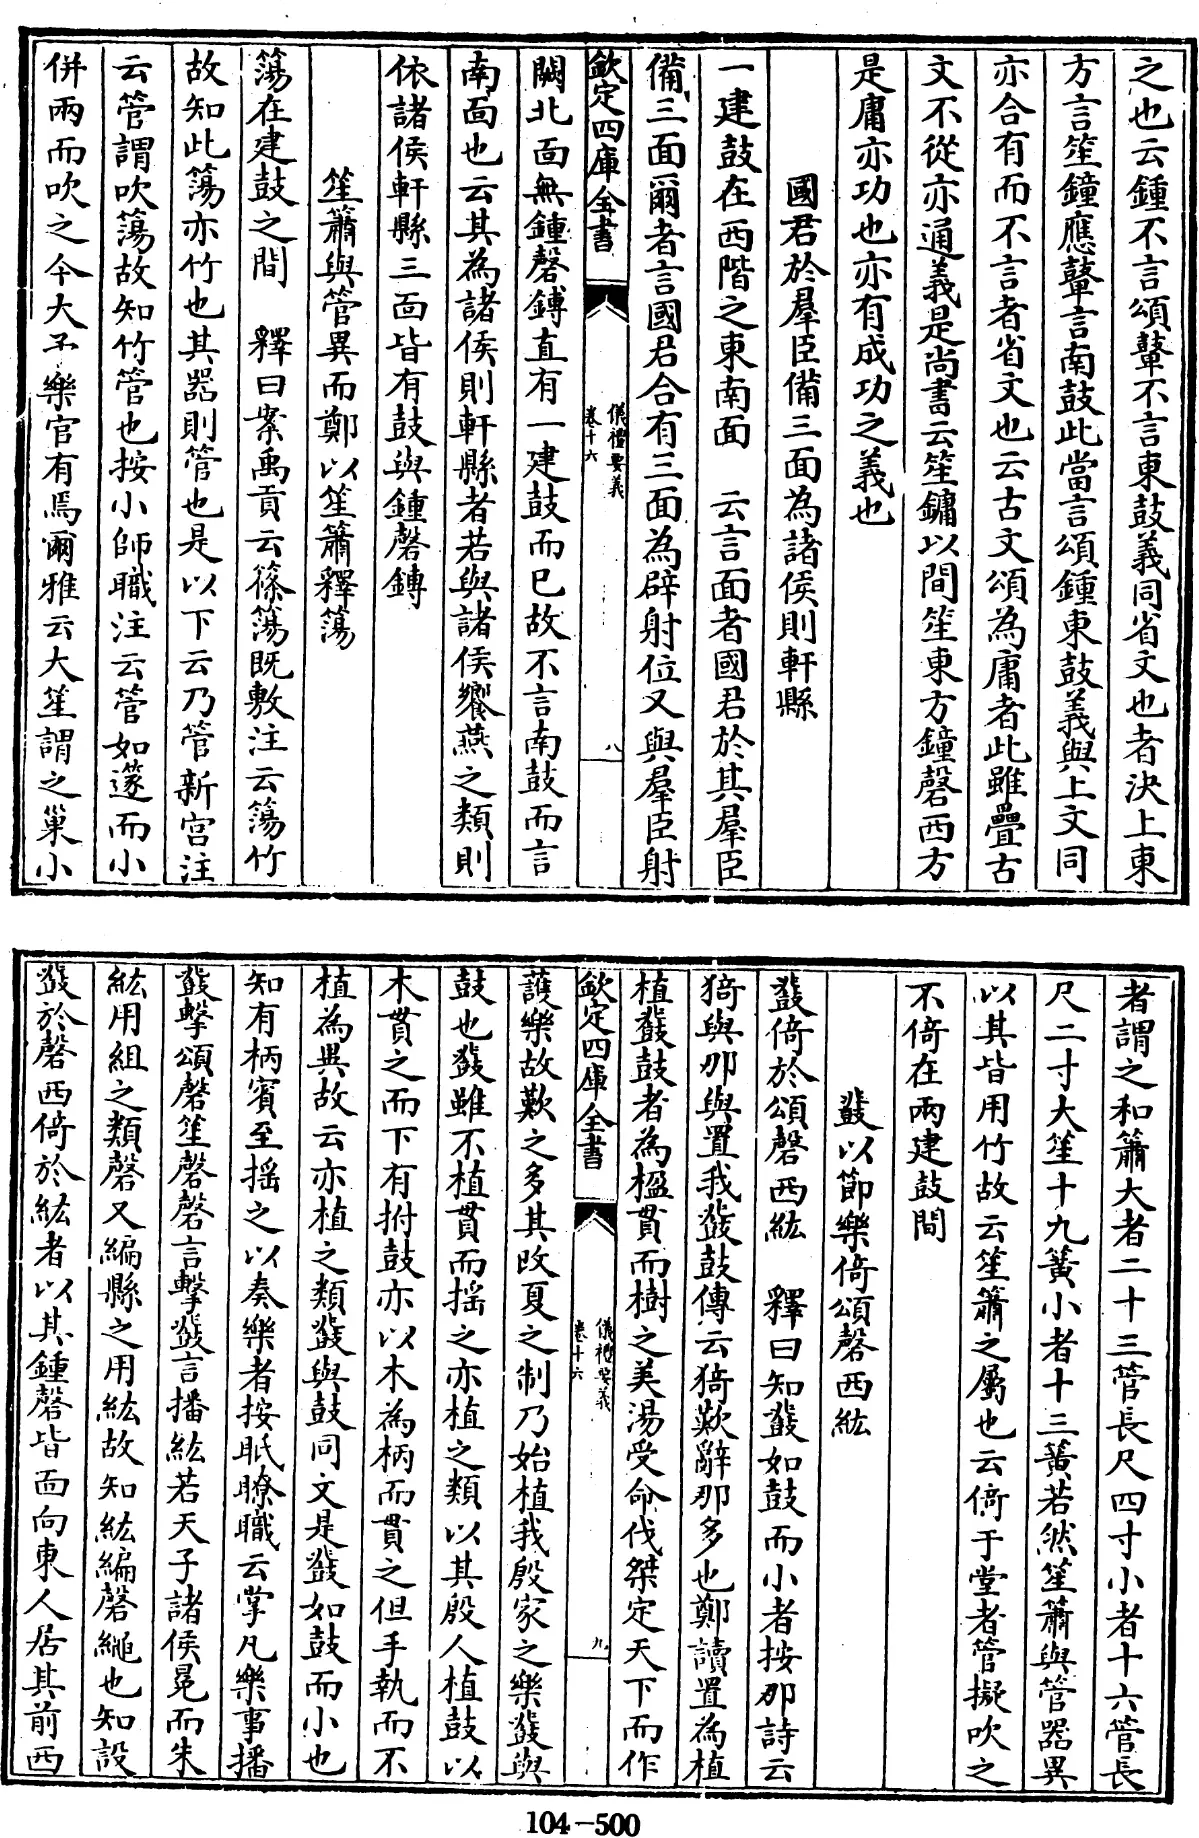 之也云鍾不言頌鼙不言東鼓義同省文也者決上東
方言笙鐘應鼙言南鼓此當言頌鍾東鼓義與上文同
亦合有而不言者省文也云古文頌為庸者此雖疊古
文不從亦通義是尚書云笙鏞以間笙東方鐘磬西方
是庸亦功也亦有成功之義也
國君於羣臣備三面為諸侯則軒縣
一建鼓在西階之東南面 云言面者國君於其羣臣
備三面爾者言國君合有三面為辟射位又與羣臣射
欽定四庫全書
儀禮要義
卷十六
八
闕北面無鍾磬鎛直有一建鼓而已故不言南鼓而言
南面也云其為諸侯則軒縣者若與諸侯饗燕之類則
依諸侯軒縣三面皆有鼓與鍾磬鎛
笙簫與管異而鄭以笙簫釋簜
簜在建鼓之間 釋曰案禹貢云篠簜既敷注云簜竹
故知此簜亦竹也其器則管也是以下云乃管新宮注
云管謂吹簜故知竹管也按小師職注云管如篴而小
併兩而吹之今大予樂官有焉爾雅云大笙謂之巢小
者謂之和簫大者二十三管長尺四寸小者十六管長
尺二寸大笙十九簧小者十三簧若然笙簫與管器異
以其皆用竹故云笙簫之屬也云倚于堂者管擬吹之
不倚在兩建鼓間
鼗以節樂倚頌磬西紘
鼗倚於頌磬西紘 釋曰知鼗如鼓而小者按那詩云
猗與那與置我鼗鼓傳云猗歎辭那多也鄭讀置為植
植鼗鼓者為楹貫而樹之美湯受命伐桀定天下而作
欽定四庫全書
儀禮要義
卷十六
九
護樂故歎之多其改夏之制乃始植我殷家之樂鼗與
鼓也鼗雖不植貫而揺之亦植之類以其殷人植鼓以
木貫之而下有柎鼓亦以木為柄而貫之但手執而不
植為異故云亦植之類鼗與鼓同文是鼗如鼓而小也
知有柄賓至揺之以奏樂者按眡瞭職云掌凡樂事播
鼗擊頌磬笙磬磬言擊鼗言播紘若天子諸侯冕而朱
紘用組之類磬又編縣之用紘故知紘編磬繩也知設
鼗於磬西倚於紘者以其鍾磬皆面向東人居其前西
104-500